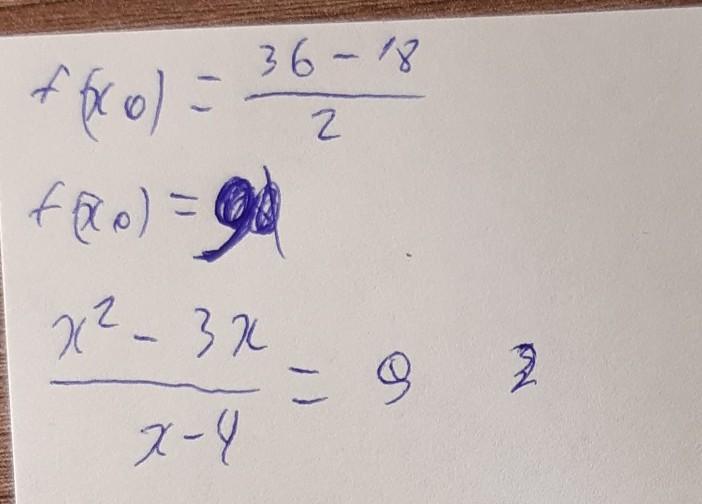 f(x₀) = (36 - 18)/2
f(x₀) = 9
(x² - 3x)/(x - 4) = 9